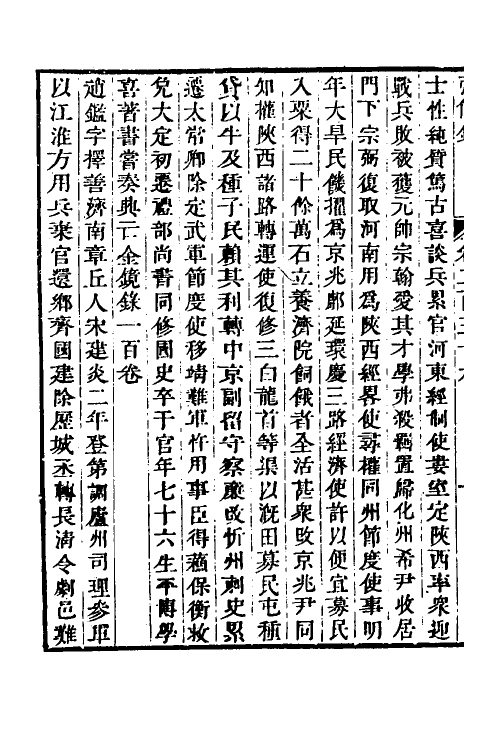 士性純質篤古喜談兵累官河東經制使婁室定陝西率衆迎
戰兵敗被獲元帥宗翰愛其才學弗殺羈置歸化州希尹收居
門下宗弼復取河南用爲陝西經畧使尋權同州節度使事明
年大旱民饑擢爲京兆鄜延環慶三路經濟使許以便宜募民
入粟得二十餘萬石立養濟院飼餓者全活甚衆改京兆尹同
知權陝西諸路轉運使復修三白龍首等渠以漑田募民屯種
貸以牛及種子民賴其利轉中京副留守察廉改忻州刺史累
遷太常卿除定武軍節度使移靖難軍忤用事臣得蕭保衡救
免大定初遷禮部尚書同修國史卒于官年七十六生平博學
喜著書嘗奏典二金鏡錄一百卷
趙鑑字擇善濟南章丘人宋建炎二年登第調廬州司理參軍
以江淮方用兵棄官還鄉齊國建除歷城丞轉長清令劇邑難